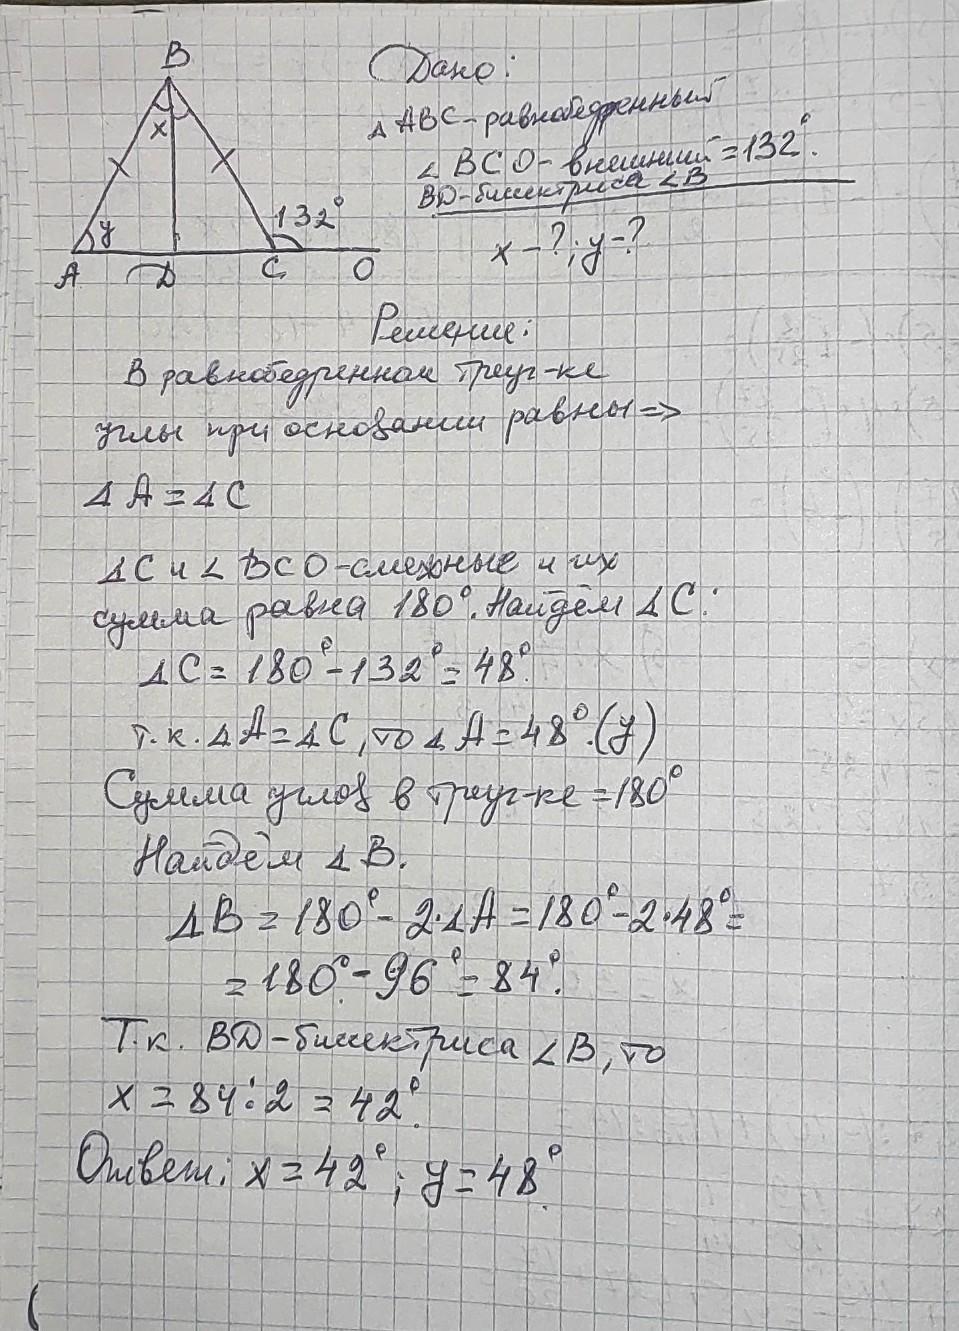 B
Дано:
△ABC-равнобедренный
x
∠BCO-внешний=132°.
BD-биссектриса ∠B
y
132°
x-?; y-?
A
D
C
O
Решение:
В равнобедренном треуг-ке
углы при основании равны=>
∠A=∠C
∠C и ∠BCO-смежные и их
сумма равна 180°. Найдём ∠C:
∠C=180°-132°=48°.
т.к. ∠A=∠C, то ∠A=48°.(y)
Сумма углов в треуг-ке=180°
Найдём ∠B.
∠B=180°-2·∠A=180°-2·48°=
=180°-96°=84°.
Т.к. BD-биссектриса ∠B, то
x=84:2=42°.
Ответ: x=42°; y=48°.